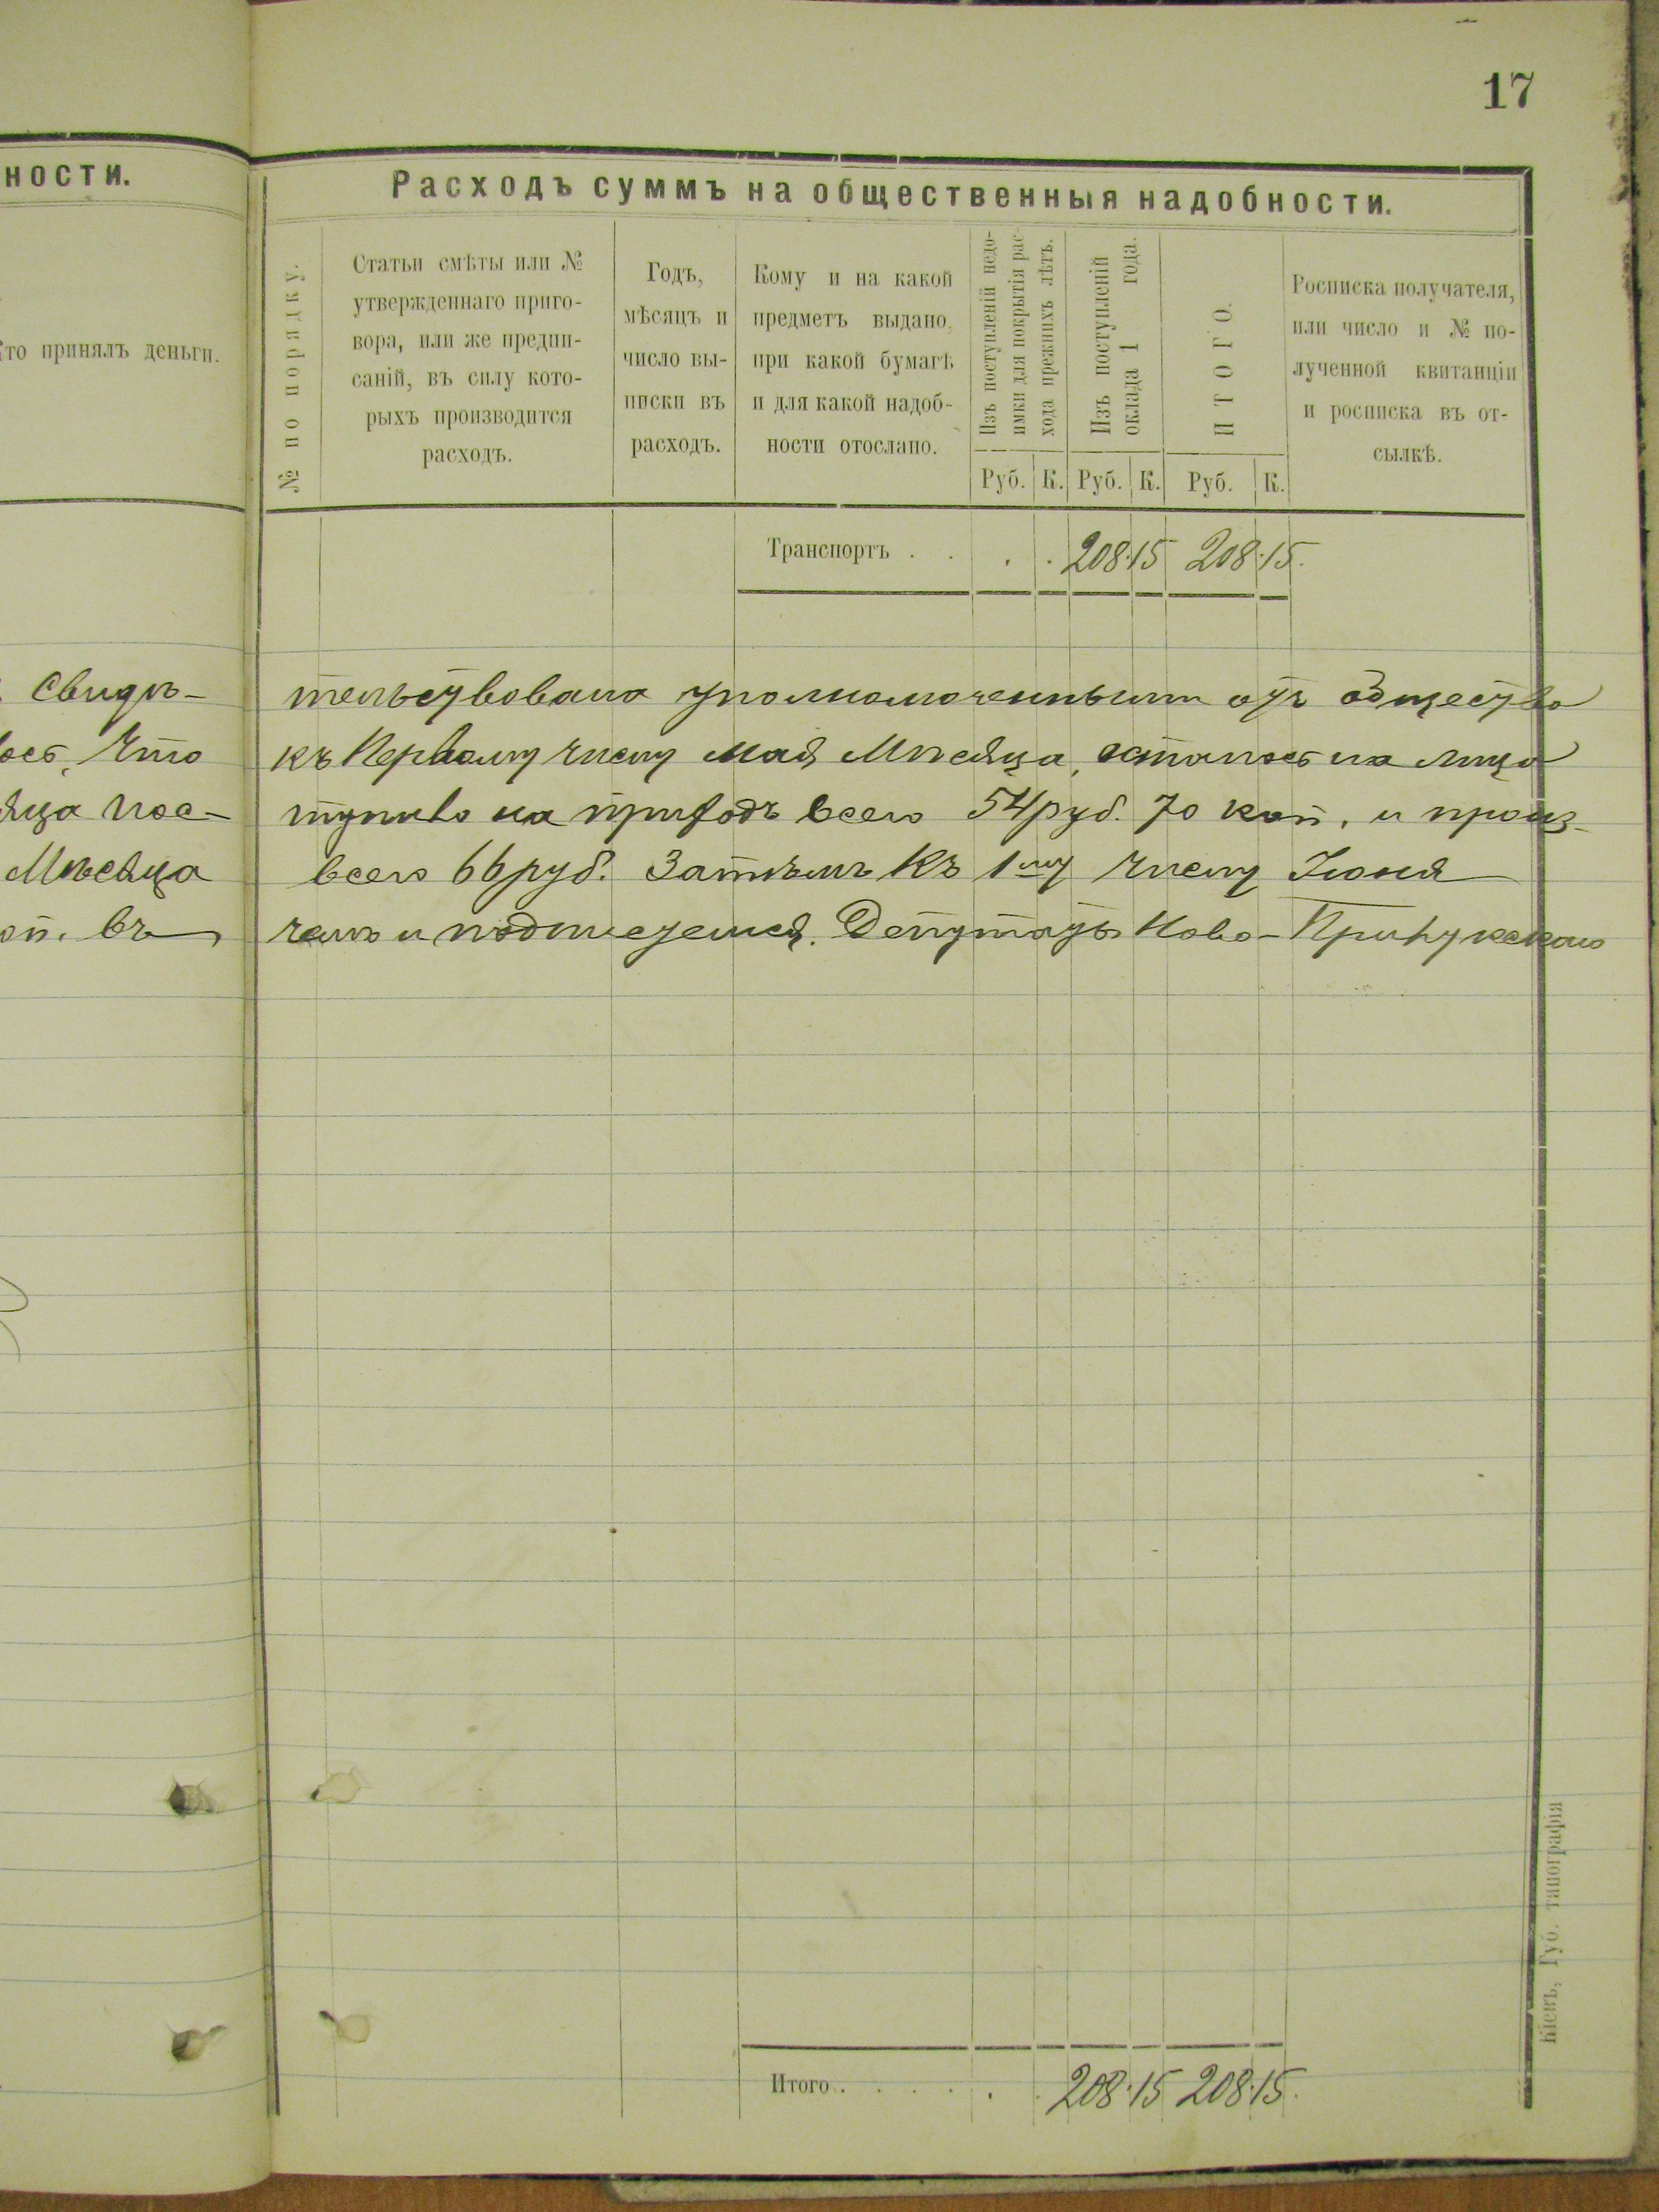 17
ности.
Расходъ суммъ на общественныя надобности.
Кто принялъ деньги.
№ по порядку.
Статьи смѣты или №
утвержденнаго приго-
вора, или же предпи-
саній, въ силу кото-
рыхъ производится
расходъ.
Годъ,
мѣсяцъ и
число вы-
писки въ
расходъ.
Кому и на какой
предметъ выдано,
при какой бумагѣ
и для какой надоб-
ности отослано.
Изъ поступленій недо-
имки для покрытія рас-
хода прежнихъ лѣтъ.
Изъ поступленій
оклада 1 года.
ИТОГО.
Росписка получателя,
или число и № по-
лученной квитанціи
и росписка въ от-
сылкѣ.
Руб. К. Руб. К. Руб. К.
Транспортъ . . . . 208.15 208.15.
Свидѣ- тельствована уполномоченными отъ общества
ось, Что къ Первому числу мая Мѣсяца, осталось на лицо
яца пос- тупило на приходъ всего 54 руб. 70 коп, и произ-
Мѣсяца всего 66 руб. Затѣмъ Къ 1му числу Іюня
оп. въ чемъ и подпишемся. Депутатъ Ново-
Итого . . . . . . 208.15 208.15.
Кіевъ, Губ. типографія